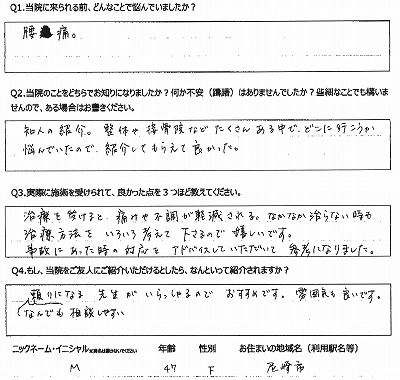 Q1.当院に来られる前、どんなことで悩んでいましたか？
腰痛。
Q2.当院のことをどちらでお知りになりましたか？何か不安（躊躇）はありませんでしたか？些細なことでも構いま
せんので、ある場合はお書きください。
知人の紹介。整体や接骨院などたくさんある中で、どこに行こうか
悩んでいたので、紹介してもらえて良かった。
Q3.実際に施術を受けられて、良かった点を３つほど教えてください。
治療を受けると、痛みや不調が軽減される。なかなか治らない時も
治療方法をいろいろ考えて下さるので嬉しいです。
事故にあった時の対応をアドバイスしていただいて参考になりました。
Q4.もし、当院をご友人にご紹介いただけるとしたら、なんといって紹介されますか？
頼りになる先生がいらっしゃるのでおすすめです。雰囲気も良いです。
なんでも相談しやすい
ニックネーム・イニシャル 年齢 性別 お住まいの地域名（利用駅名等）
M 47 F 尼崎市